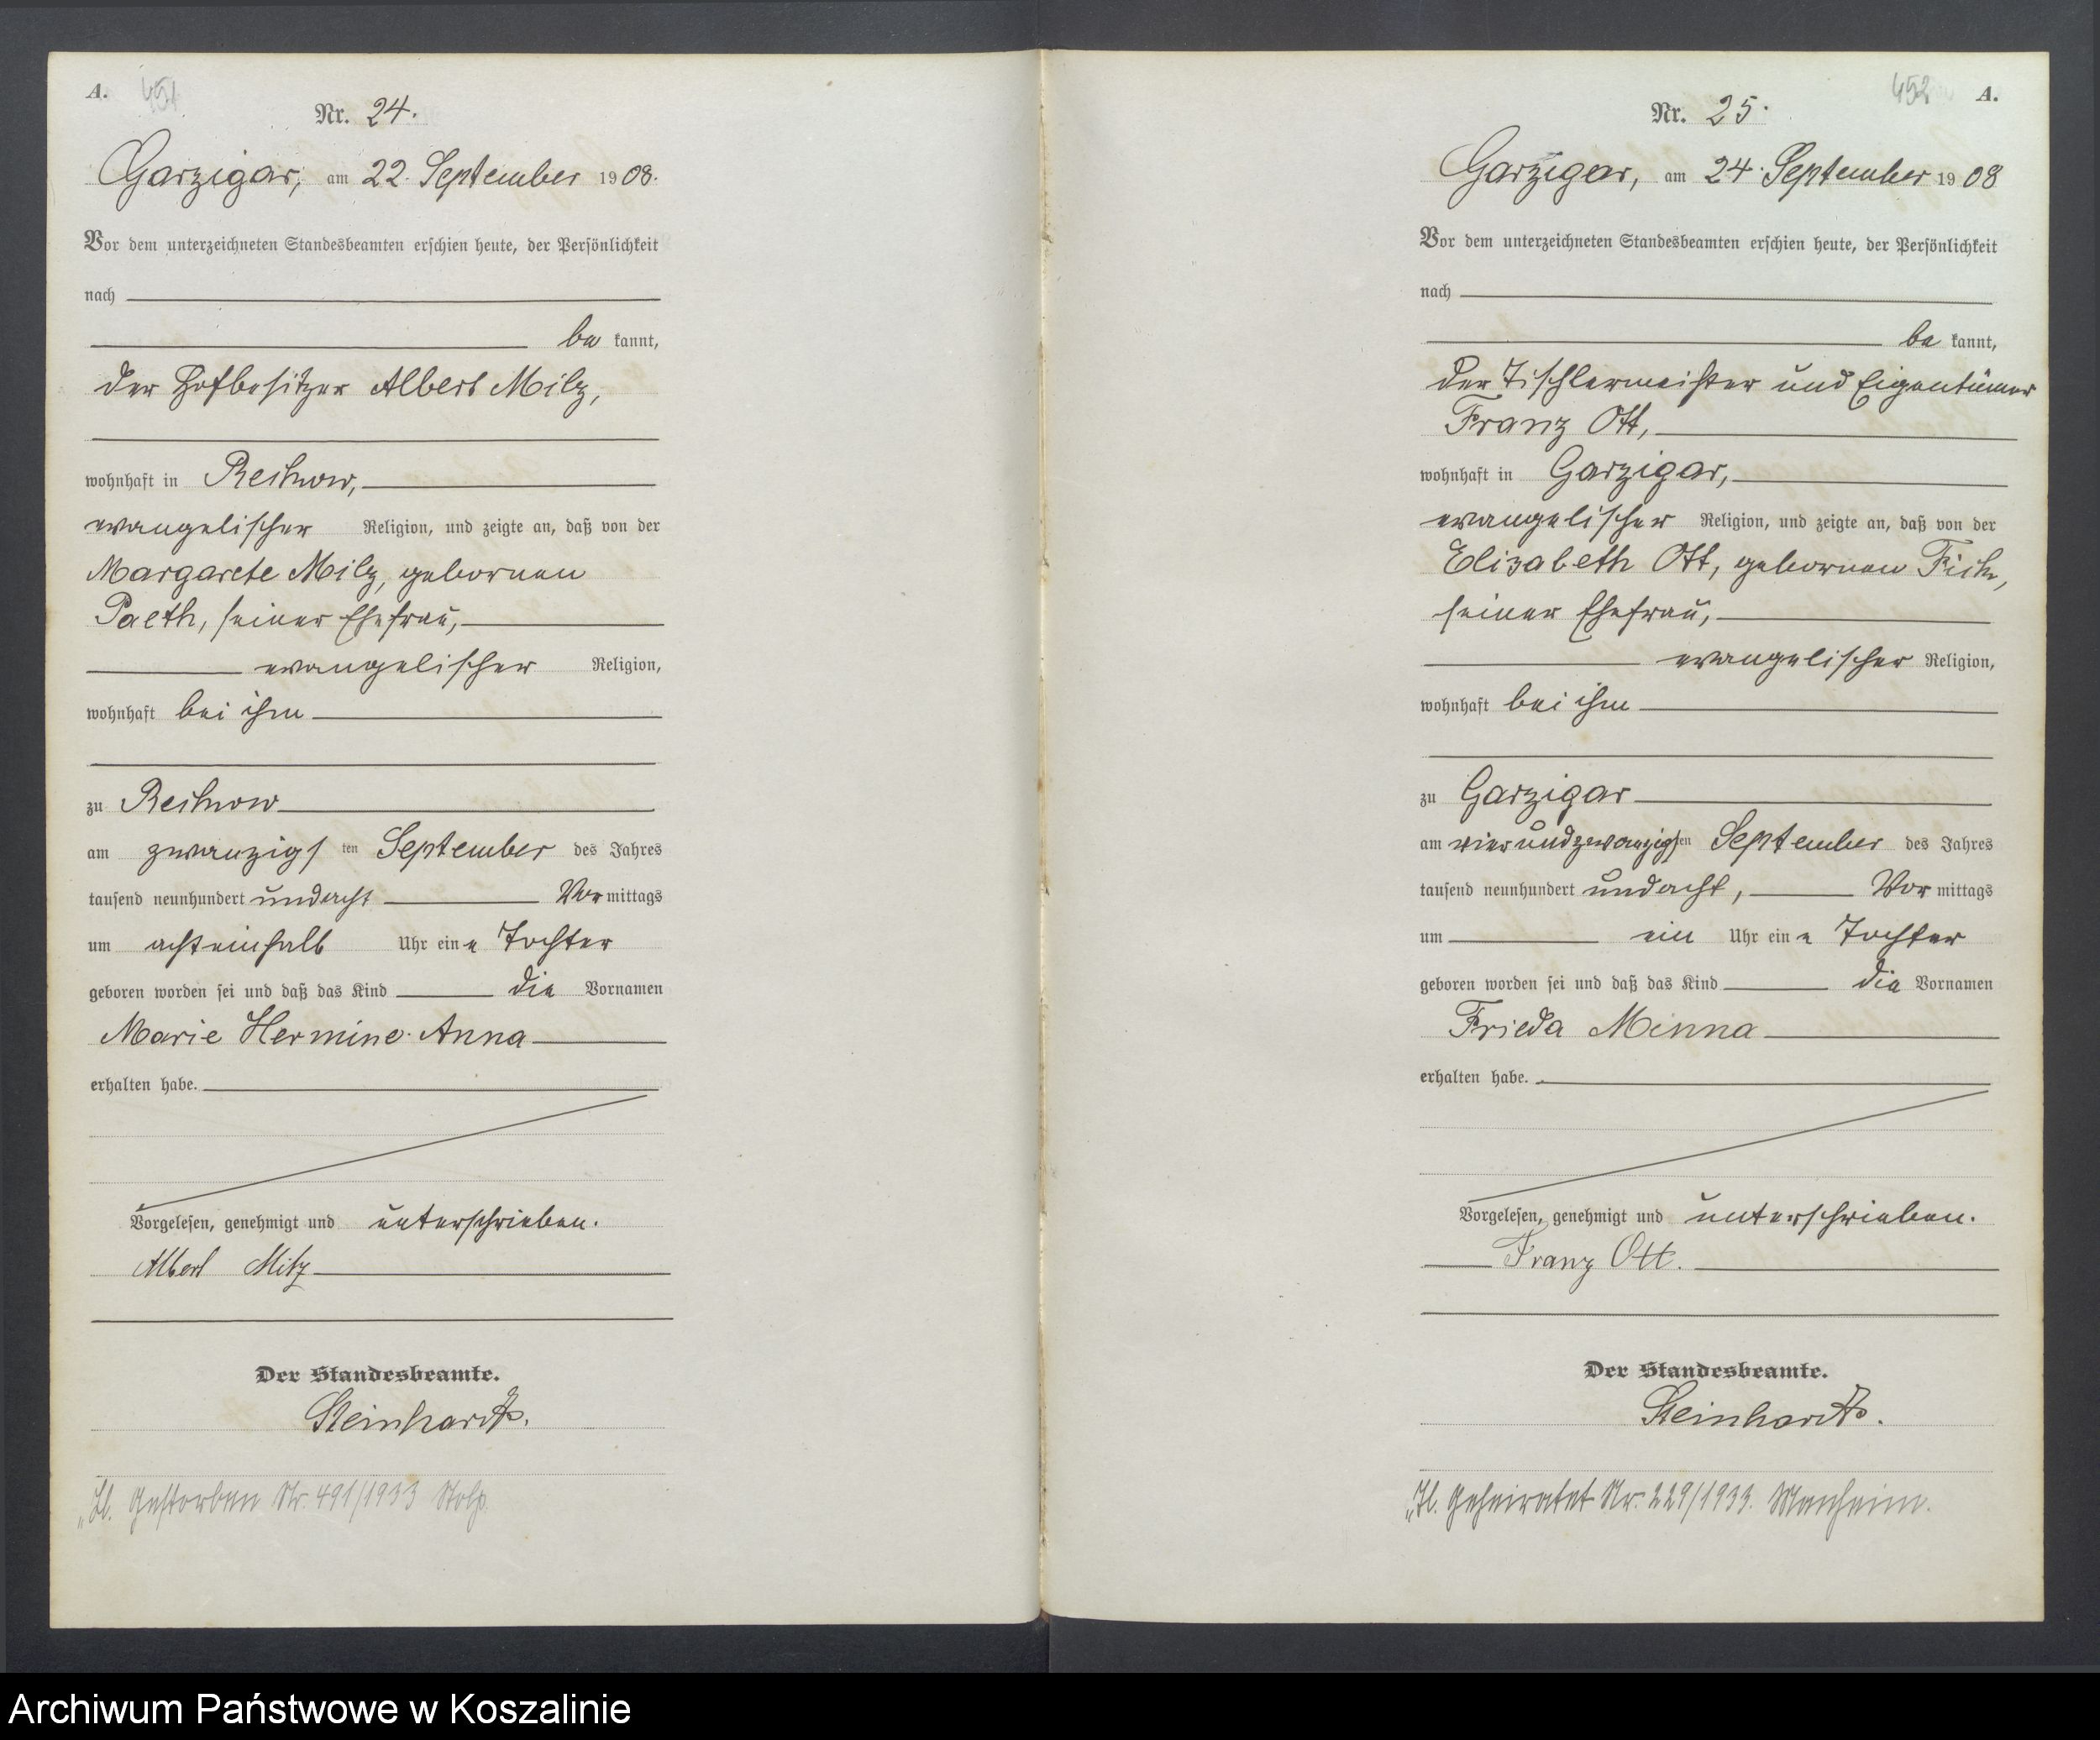 A. 451
Nr. 24.
Garzigar, am 22. September 1908.
Vor dem unterzeichneten Standesbeamten erschien heute, der Persönlichkeit
nach
bekannt,
der Hofbesitzer Albert Milz,
wohnhaft in Reckow,
evangelischer Religion, und zeigte an, daß von der
Margarete Milz, gebornen
Paeth, seiner Ehefrau,
evangelischer Religion,
wohnhaft bei ihm
zu Reckow
am zwanzigsten September des Jahres
tausend neunhundert undacht Vormittags
um achteinhalb Uhr eine Tochter
geboren worden sei und daß das Kind die Vornamen
Marie Hermine Anna
erhalten habe.
Vorgelesen, genehmigt und unterschrieben.
Albert Milz
Der Standesbeamte.
Steinhardt.
Gestorben Nr. 491/1933 Stolp.
452 A.
Nr. 25.
Garzigar, am 24. September 1908
Vor dem unterzeichneten Standesbeamten erschien heute, der Persönlichkeit
nach
bekannt,
der Tischlermeister und Eigentümer
Franz Ott,
wohnhaft in Garzigar,
evangelischer Religion, und zeigte an, daß von der
Elisabeth Ott, gebornen
seiner Ehefrau,
evangelischer Religion,
wohnhaft bei ihm
zu Garzigar
am vierundzwanzigsten September des Jahres
tausend neunhundert undacht, Vormittags
um ein Uhr eine Tochter
geboren worden sei und daß das Kind die Vornamen
Frieda Minna
erhalten habe.
Vorgelesen, genehmigt und unterschrieben.
Franz Ott.
Der Standesbeamte.
Steinhardt.
Geheiratet Nr. 229/1933. Manheim.
Archiwum Państwowe w Koszalinie